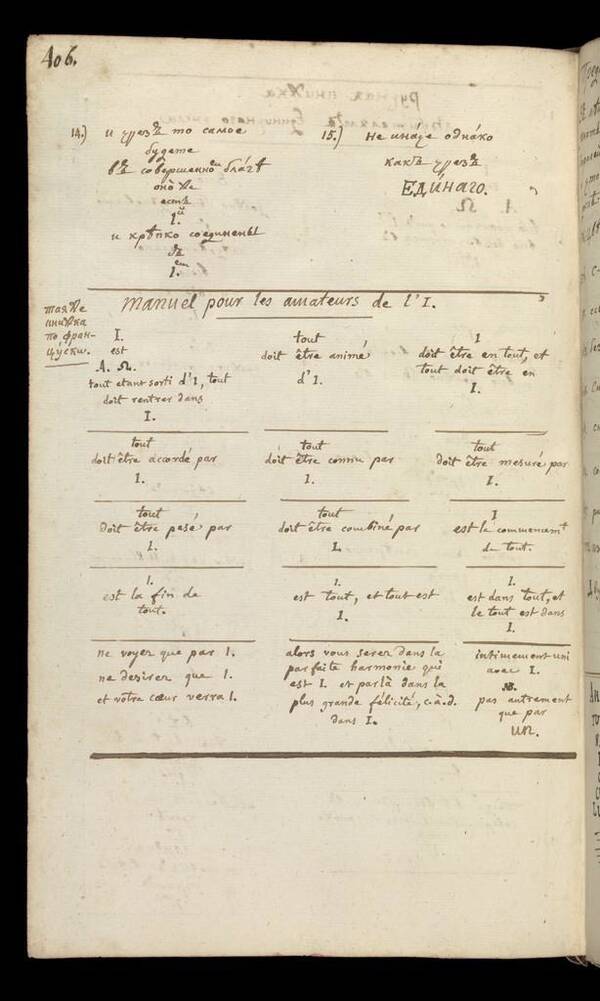 406.
14.) и чрезъ то самое
будете
въ совершенно благѣ
оно же
есть
1.й
и крѣпко соединены
съ
1.
15.) Не иначе однако
какъ чрезъ
ЕДИНАГО.
Manuel pour les amateurs de l'I.
таяже
книжка
по фран-
цуски.
I.
est
A. Ω.
tout etant sorti d'I, tout
doit rentrer dans
I.
tout
doit être animé
d'I.
I
doit être en tout, et
tout doit être en
I.
tout
doit être accordé par
I.
tout
doit être connu par
I.
tout
doit être mesuré par
I.
tout
doit être pesé par
I.
tout
doit être combiné par
I.
I
est le commencemt
de tout.
I.
est la fin de
tout.
I.
est tout, et tout est
I.
I.
est dans tout, et
le tout est dans
I.
ne voyez que par I.
ne desirez que I.
et vôtre cœur verra I.
alors vous serez dans la
parfaite harmonie qui
est I. et par là dans la
plus grande félicité, c.à.d.
dans I.
intimement uni
avec I.
NB.
pas autrement
que par
UN.